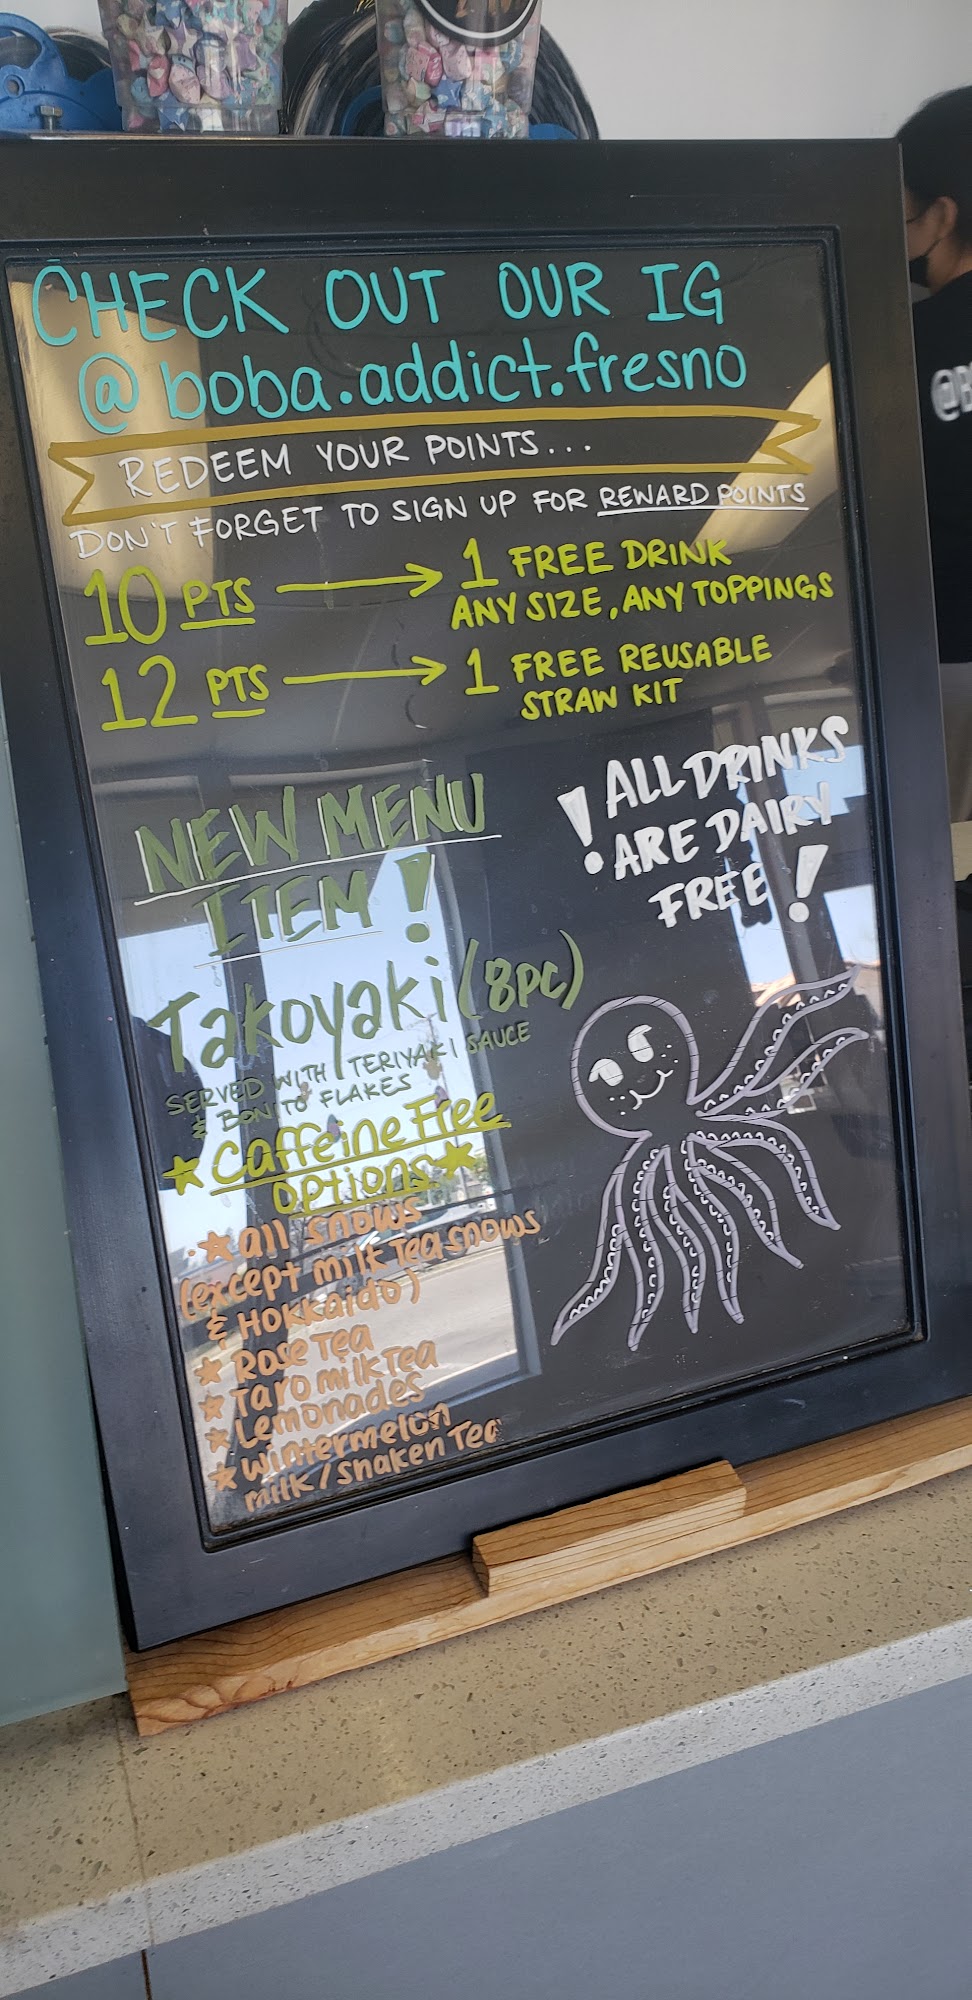 CHECK OUT OUR IG
@boba.addict.fresno
REDEEM YOUR POINTS...
DON'T FORGET TO SIGN UP FOR REWARD POINTS
10 PTS → 1 FREE DRINK
ANY SIZE, ANY TOPPINGS
12 PTS → 1 FREE REUSABLE
STRAW KIT
NEW MENU
ITEM!
! ALL DRINKS
ARE DAIRY
FREE !
Takoyaki (8pc)
SERVED WITH TERIYAKI SAUCE
& BONITO FLAKES
★ Caffeine Free
options ★
★ all snows
(except milk Tea snows
& HOKKaido)
★ Rose Tea
★ Taro milk Tea
★ Lemonades
★ wintermelon
milk / Shaken Tea